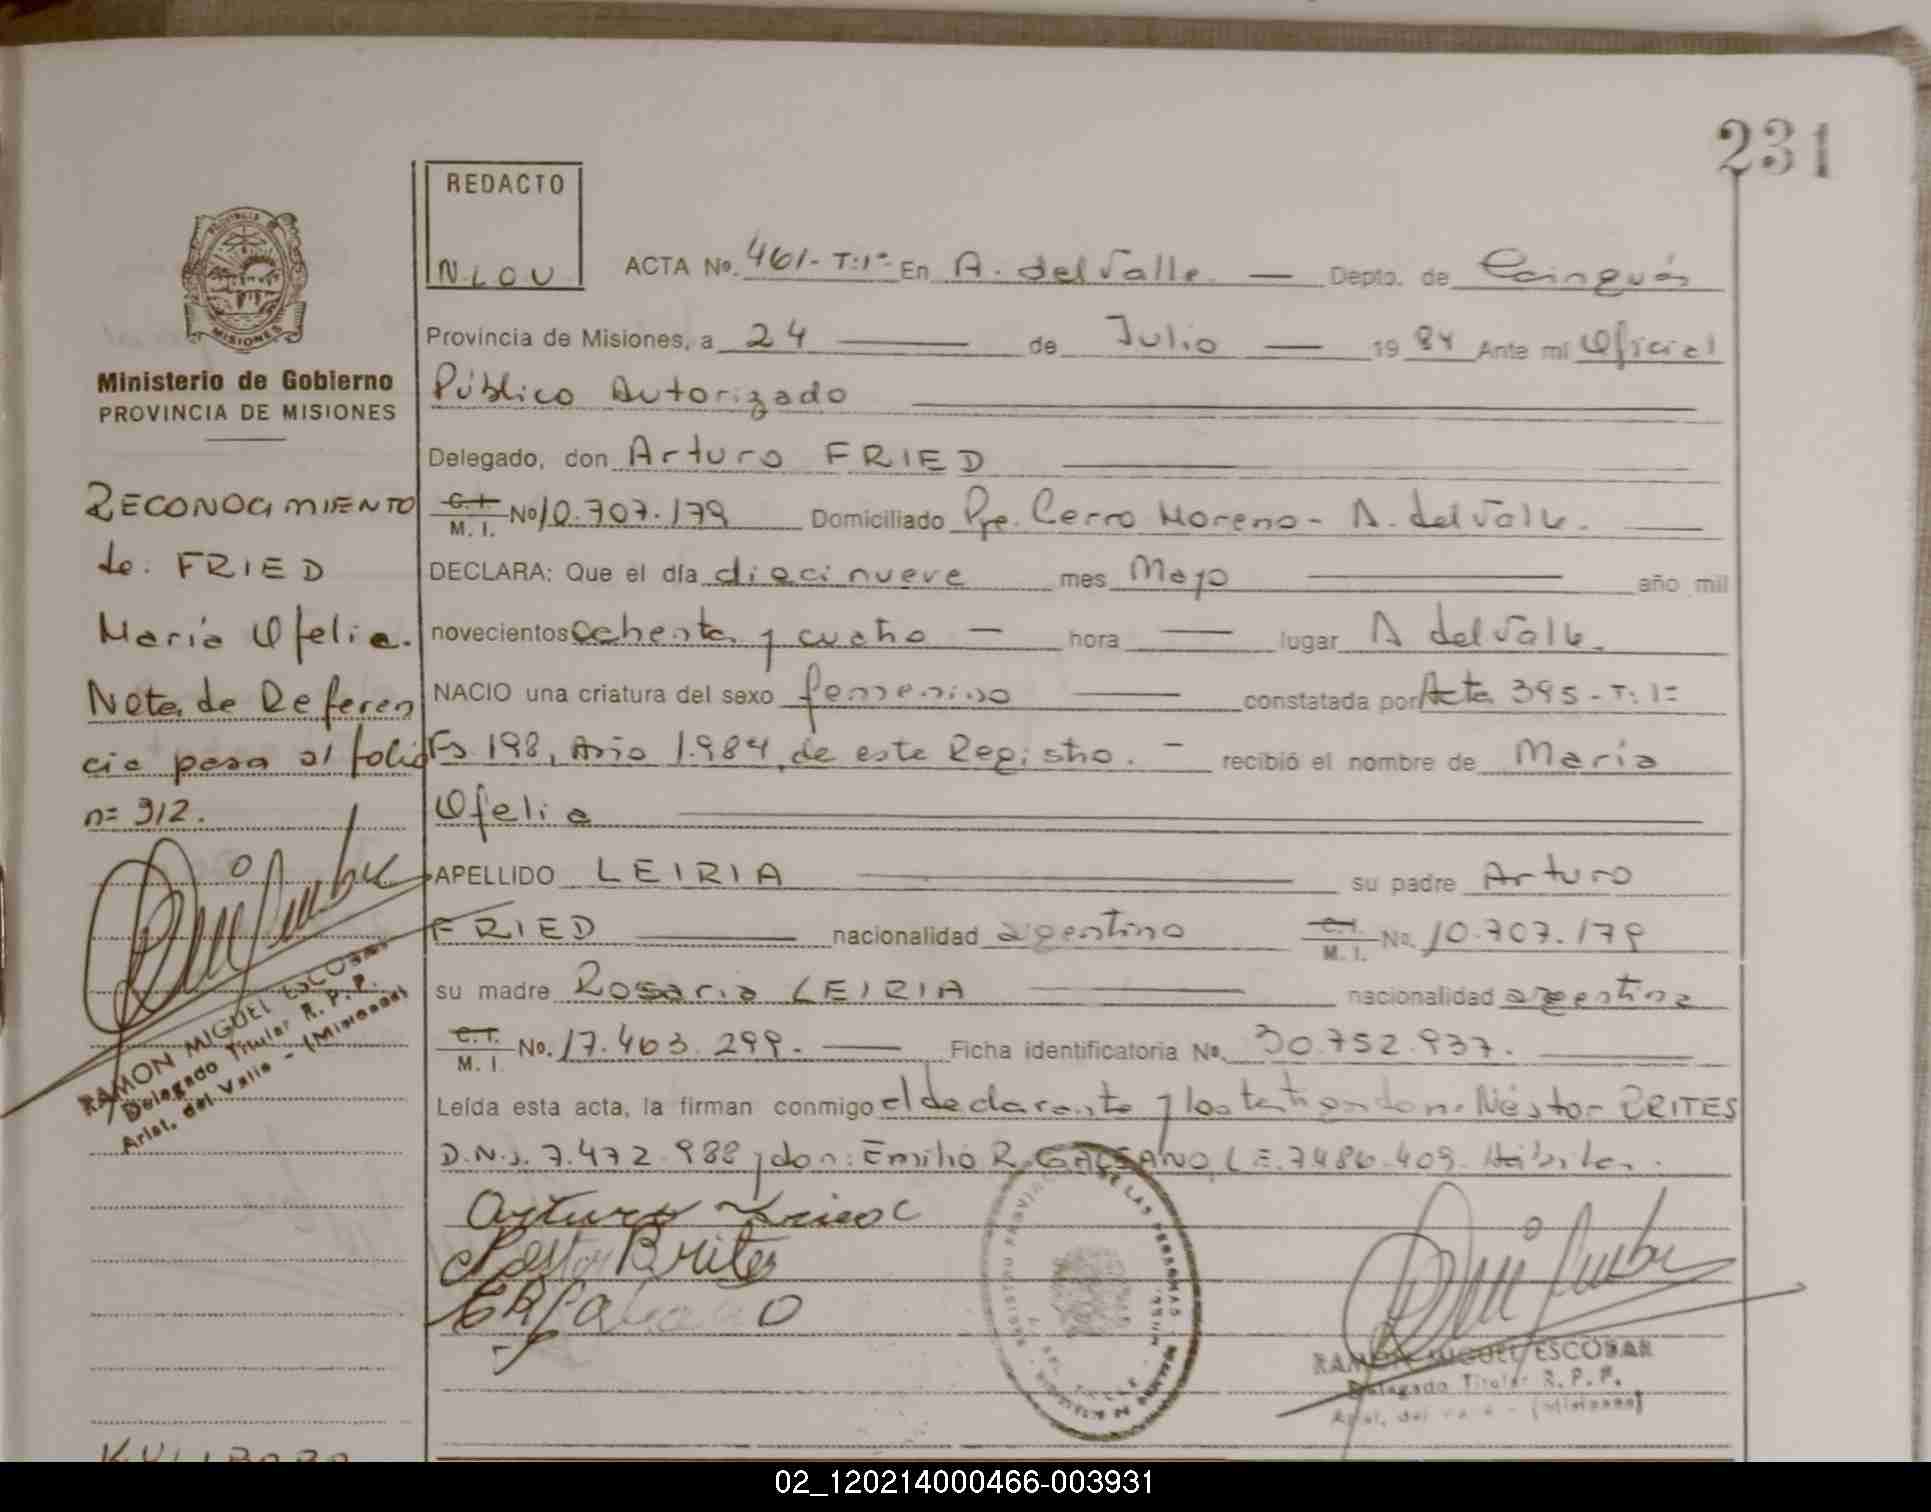 231
REDACTO
N.LOU
ACTA Nº. 461-T:1º- En A. del Valle. — Depto. de Cainguás
Provincia de Misiones, a 24 — de Julio — 1984 Ante mí Oficial
Público Autorizado
Delegado, don Arturo FRIED
C.I. M.I. Nº 10.707.179 Domiciliado Pje. Cerro Moreno - A. del Valle.
DECLARA: Que el día diecinueve mes Mayo año mil
novecientos ochenta y cuatro — hora — lugar A del Valle.
NACIO una criatura del sexo femenino constatada por Acta 395-T:1º
Fs 198, Año 1.984, de este Registro. - recibió el nombre de María
Ofelia
APELLIDO LEIRIA su padre Arturo
FRIED nacionalidad argentino C.I. M.I. No. 10.707.179
su madre Rosaria LEIRIA nacionalidad argentina
C.I. M.I. No. 17.463.299. — Ficha identificatoria No. 30.752.937.
Leída esta acta, la firman conmigo el declarante y los testigos don: Néstor BRITES
D.N.I. 7.472.988 y don: Emilio R. L.E. 7486.409. Hábiles.
Arturo Fried
Nestor Brites
REGISTRO PROVINCIAL DE LAS PERSONAS
RAMON MIGUEL ESCOBAR
Delegado Titular R. P. P.
Arist. del Valle - (Misiones)
PROVINCIA
MISIONES
Ministerio de Gobierno
PROVINCIA DE MISIONES
RECONOCIMIENTO
de. FRIED
María Ofelia.
Nota de Referen
cia pasa al folio
nº 312.
RAMON MIGUEL ESCOBAR
Delegado Titular R. P. P.
Arist. del Valle - (Misiones)
02_120214000466-003931